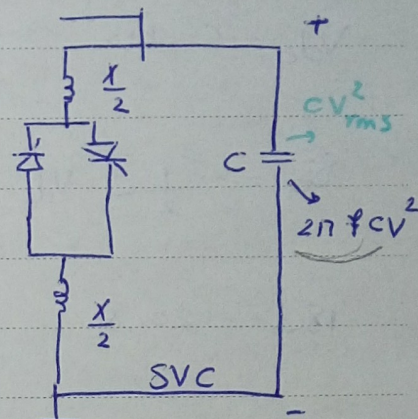 +
X/2
CV²rms
C
2π f CV²
X/2
SVC
-